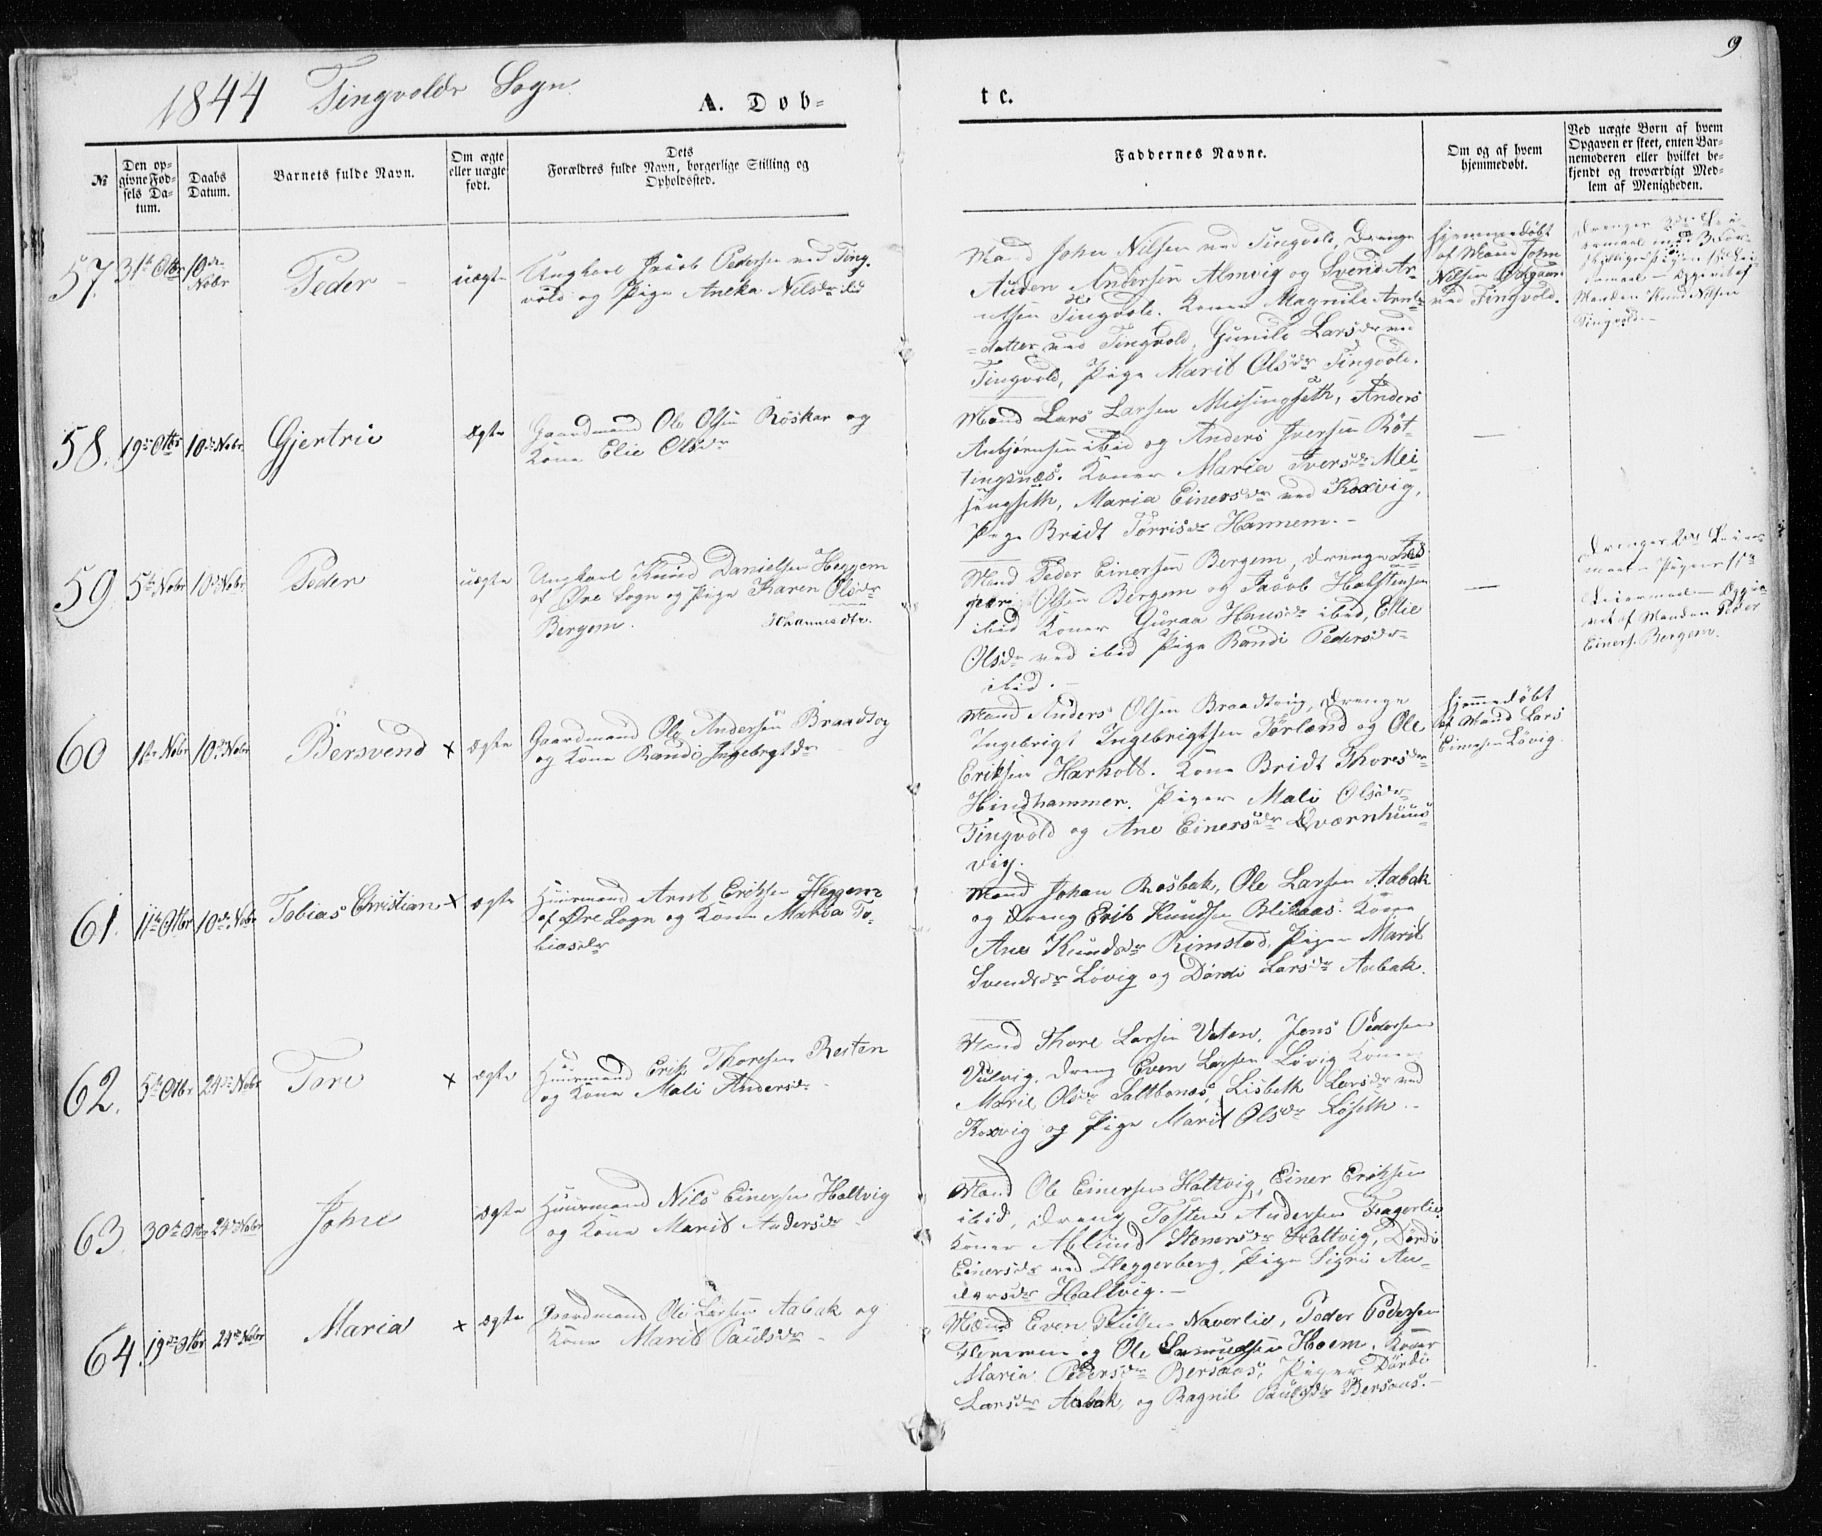 9
1844 Tingvolds Sogn.
A. Døb-
te.
№
Den op-
givne Fød-
sels Da-
tum.
Daabs
Datum.
Barnets fulde Navn.
Om ægte
eller uægte
født.
Dets
Forældres fulde Navn, borgerlige Stilling og
Opholdssted.
Faddernes Navne.
Om og af hvem
hjemmedøbt.
Ved uægte Børn af hvem
Opgaven er skeet, enten Bar-
nemoderen eller hvilket be-
kjendt og troværdigt Med-
lem af Menigheden.
57. 31te Octbr 10de Novbr Peder uægte
Ungkarl Jacob Pedersen ved Ting-
vold og Pige Aneka Nilsdr ibid
Mand John Nilsen ved Tingvold, Drenge
Auden Andersen Almvig og Svend Ar-
ntsen Tingvold. Koner Magnild Arnts-
datter ved Tingvold, Gunild Larsdr ved
Tingvold, Pige Marit Olsdr Tingvold.
hjemmedøbt
af Mand John
Nilsen
ved Tingvold.
Drenges 2det Lei-
ermaal med
Pigens
Opgivet af
Manden Knud Nilsen
Tingvold.
58. 19de Octbr 10de Novbr Gjertrud ægte
Gaardmand Ole Olsen Röskar og
Kone Elie Olsdr
Mand Lars Larsen Meisingseth, Anders
Anbjørnsen ibid og Anders Iversen Röt-
tingsnæs. Koner Maria Iversdr Mei-
singseth, Maria Einersdr ved Koxvig,
Pige Bridt Torrisdr Hannem. -
—
59. 5te Novbr 10de Novbr Peder uægte
Ungkarl Knud Danielsen Heggem
af Øre Sogn og Pige Karen Olsdr
Bergem. Johannesdtr.
Mand Peder Einersen Bergem, Drenge
Olsen Bergem og Jacob Halstensen
ibid Koner Guraa Hansdr ibid, Elie
Olsdr ved ibid Pige Randi Pedersdr
ibid. -
—
Drenges 2det Leier-
maal Pigens 1ste
Leiermaal - Opgi-
vet af Manden Peder
Einers. Bergem.
60 1ste Novbr 10de Novbr Bersvend x ægte
Gaardmand Ole Andersen Braadtvg
og Kone Randi Ingebrgtdr
Mand Anders Olsen Braadtvig, Drenge
Ingebrigt Ingebrigtsen Torland og Ole
Eriksen Harholt. Kone Bridt Thoresdr
Hindhammer. Piger Mali Olsdr
Tingvold og Ane Einersdr Qværnhuus-
vig.
hjemmedøbt
af Mand Lars
Einersen Løvig.
61. 11te Octbr 10de Novbr Tobias Christian x ægte
Huusmand Arnt Eriksen Heggem
af Øre Sogn og Kone Maria To-
biasdr
Mand Johan Rosbak, Ole Larsen Aabak
og Dreng Erik Knudsen Blikaas. Kone
Ane Knudsdr Rimstad, Piger Marit
Svendsdr Løvig og Dordi Larsdr Aabak.
62. 5te Octbr 24de Novbr Tore x ægte
Huusmand Erik Thoresen Resten
og Kone Mali Andersdr -
Mand Thore Larsen Vaten, Jens Pedersen
Vulvig, Dreng Even Larsen Løvig Koner
Marit Olsdr Saltbonæs, Lisbeth Larsdr ved
Koxvig og Pige Marit Olsdr Løseth. -
63. 30te Octbr 24de Novbr John ægte
Huusmand Nils Einersen Holtvig
og Kone Marit Andersdr -
Mand Ole Einersen Holtvig, Einer Eriksen
ibid, Dreng Tosten Andersen Fagerlie
Koner Aslaud Stenersdr Holtvig, Dordi
Einersdr ved Heggerberg, Pige Sigri An-
dersdr Holtvig. -
64. 19de Octbr 24de Novbr Maria x ægte
Gaardmand Ole Larsen Aabak og
Kone Marit Paulsdr -
Mænd Even Naverlie, Peder Pedersen
og Ole Hoem. Koner
Maria Pedersdr Bersaas, Piger Dordi
Larsdr Aabak, og Ragnil Paulsdr Bersaas. -